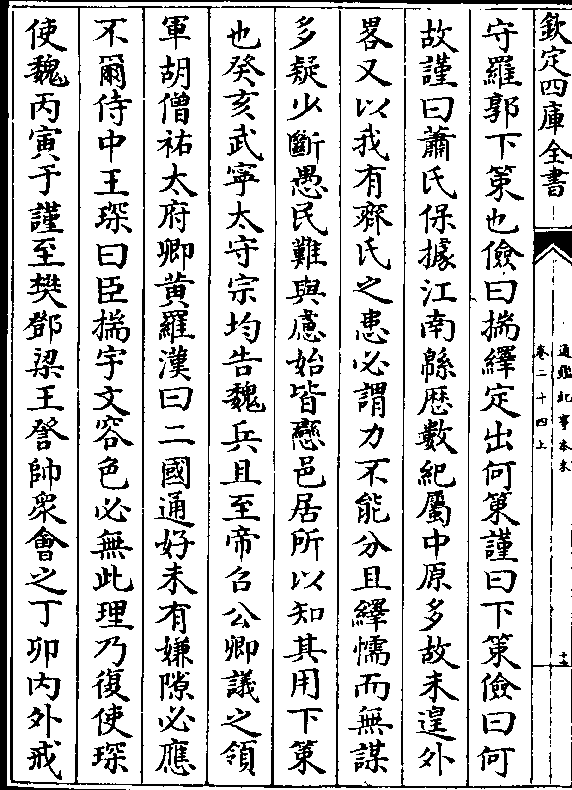 欽定四庫全書
通鑑紀事本末
卷二十四上
十五
守羅郭下策也儉曰揣繹定出何策謹曰下策儉曰何
故謹曰蕭氏保據江南緜歴數紀屬中原多故未遑外
畧又以我有齊氏之患必謂力不能分且繹懦而無謀
多疑少斷愚民難與慮始皆戀邑居所以知其用下策
也癸亥武寧太守宗均告魏兵且至帝召公卿議之領
軍胡僧祐太府卿黄羅漢曰二國通好未有嫌隙必應
不爾侍中王琛曰臣揣宇文容色必無此理乃復使琛
使魏丙寅于謹至樊鄧梁王詧帥衆會之丁卯内外戒